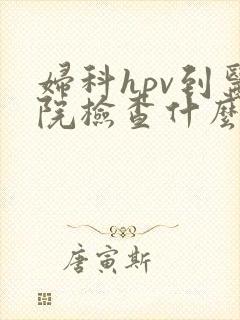 婦科hpv到醫
院檢查什麼
唐寅斯